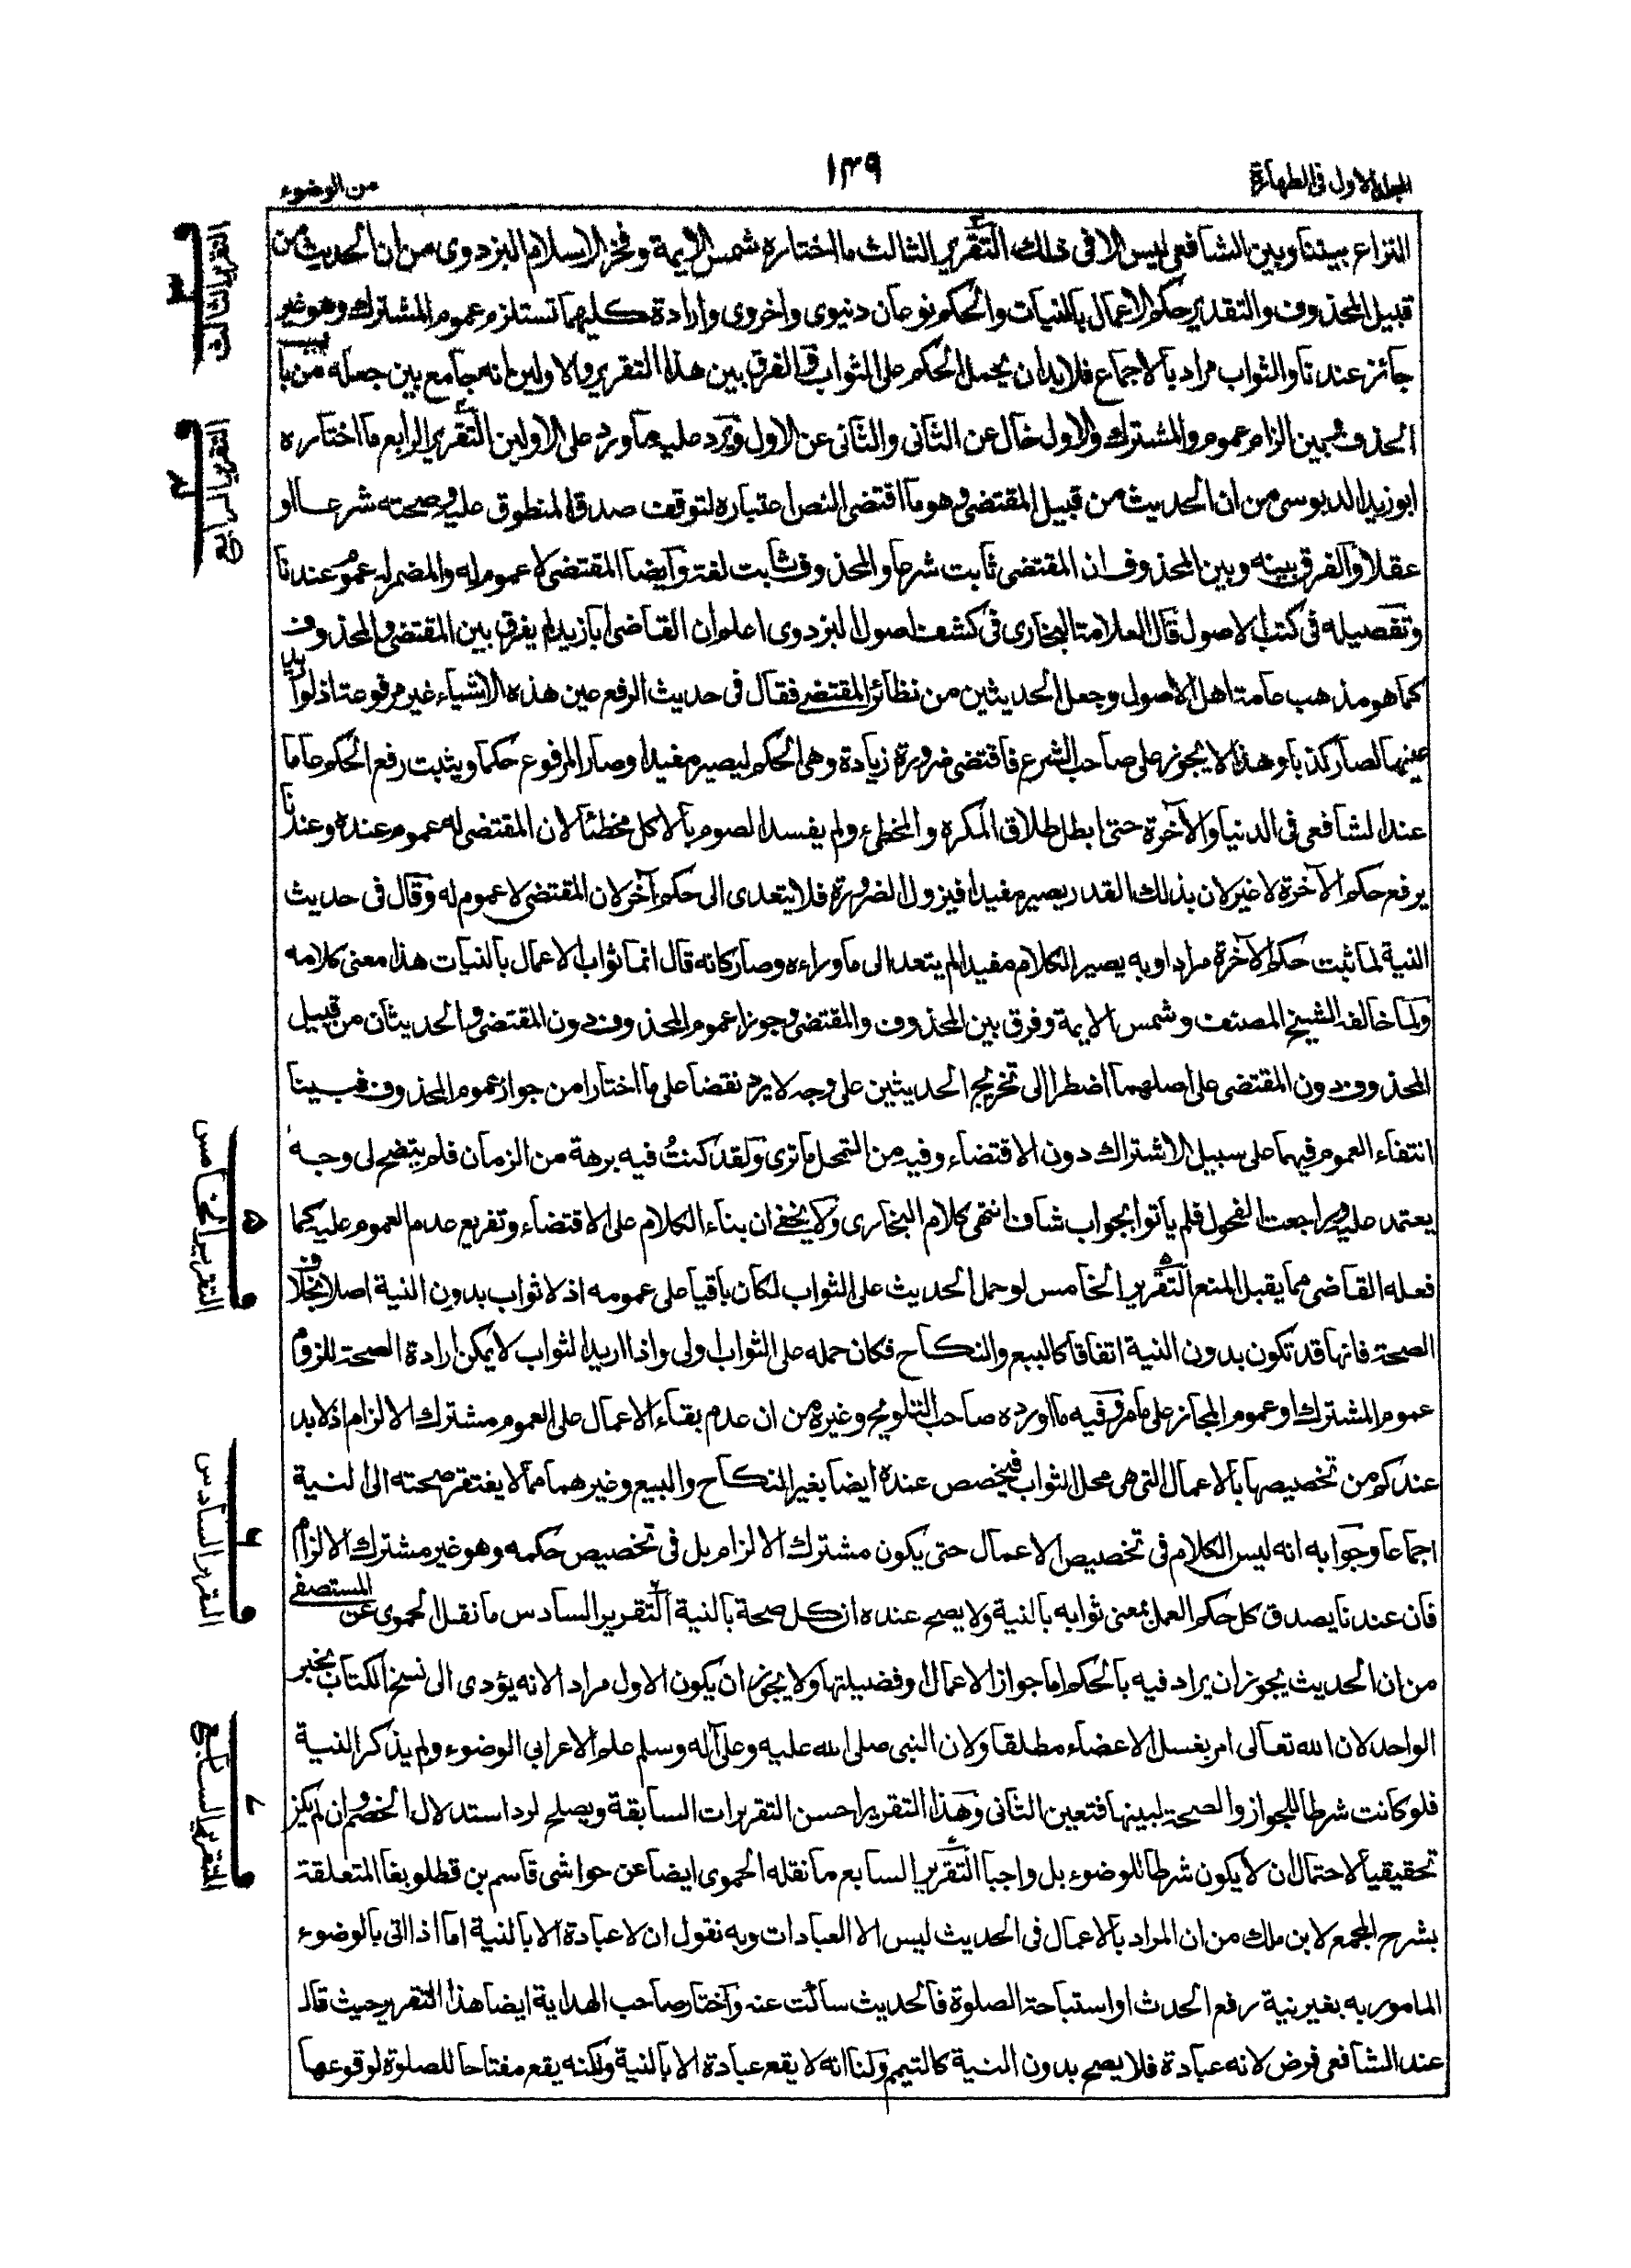 المجلد الاول فى الطهارة
١٣٩
من الوضوء
النزاع بيننا وبين الشافعى ليس الا فى ذلك التقرير الثالث ما اختاره شمس الايمة وفخر الاسلام البزدوى من ان الحديث من
قبيل المحذوف والتقدير حكم الاعمال بالنيات والحكم نوعان دنيوى واخروى وارادة كليهما تستلزم عموم المشترك وهو غير
جائز عندنا والثواب مراد بالاجماع فلا بد ان يحمل الحكم على الثواب والفرق بين هذا التقرير والاولين انه جامع بين جعله من باب
الحذف وبين الزام عموم المشترك والاول خال عن الثانى والثانى عن الاول ويرد عليه ما ورد على الاولين التقرير الرابع ما اختاره
ابو زيد الدبوسى من ان الحديث من قبيل المقتضى وهو ما اقتضى النص اعتباره لتوقف صدق المنطوق عليه وصحته شرعا او
عقلا والفرق بينه وبين المحذوف ان المقتضى ثابت شرعا والمحذوف ثابت لغة وايضا المقتضى لا عموم له والمضمر له عموم عندنا
وتفصيله فى كتب الاصول قال العلامة البخارى فى كشف اصول البزدوى اعلم ان القاضى ابا زيد لم يفرق بين المقتضى والمحذوف
كما هو مذهب عامة اهل الاصول وجعل الحديثين من نظائر المقتضى فقال فى حديث الرفع عين هذه الاشياء غير مرفوعة اذ لو اريد
عينها لصار كذبا وهذا لا يجوز على صاحب الشرع فاقتضى ضرورة زيادة وهى الحكم ليصير مفيدا وصار المرفوع حكما ويثبت رفع الحكم عاما
عند الشافعى فى الدنيا والآخرة حتى ابطل طلاق المكره والمخطئ ولم يفسد الصوم بالاكل مخطئا لان المقتضى له عموم عنده وعندنا
يرفع حكم الآخرة لا غير لان بذلك القدر يصير مفيدا فيزول الضرورة فلا يتعدى الى حكم آخر لان المقتضى لا عموم له وقال فى حديث
النية لما ثبت حكم الآخرة مرادا وبه يصير الكلام مفيدا لم يتعد الى ما وراءه وصار كانه قال انما ثواب الاعمال بالنيات هذا معنى كلامه
ولما خالفه الشيخ المصنف وشمس الايمة وفرق بين المحذوف والمقتضى وجوزا عموم المحذوف دون المقتضى والحديثان من قبيل
المحذوف دون المقتضى على اصلهما اضطرا الى تخريج الحديثين على وجه لا يرد نقضا على ما اختارا من جواز عموم المحذوف فبينا
انتفاء العموم فيهما على سبيل الاشتراك دون الاقتضاء وفيه من التمحل ما ترى ولقد كنتُ فيه برهة من الزمان فلم يتضح لى وجه
يعتمد عليه وراجعت الفحول فلم ياتوا بجواب شاف انتهى كلام البخارى ولا يخفى ان بناء الكلام على الاقتضاء وتفريع عدم العموم عليه كما
فعله القاضى مما يقبل المنع التقرير الخامس لو حمل الحديث على الثواب لكان باقيا على عمومه اذ لا ثواب بدون النية اصلا بخلاف
الصحة فانها قد تكون بدون النية اتفاقا كالبيع والنكاح فكان حمله على الثواب اولى واذا اريد الثواب لا يمكن ارادة الصحة للزوم
عموم المشترك او عموم المجاز على ما مر وفيه ما اورده صاحب التلويح وغيره من ان عدم بقاء الاعمال على العموم مشترك الالزام اذ لا بد
عندكم من تخصيصها بالاعمال التى هى محل الثواب فيخصص عنده ايضا بغير النكاح والبيع وغيرهما مما لا يفتقر صحته الى النية
اجماعا وجوابه انه ليس الكلام فى تخصيص الاعمال حتى يكون مشترك الالزام بل فى تخصيص حكمه وهو غير مشترك الالزام
فان عندنا يصدق كل حكم العمل بمعنى ثوابه بالنية ولا يصح عنده ان كل صحة بالنية التقرير السادس ما نقل الحموى عن المستصفى
من ان الحديث يجوز ان يراد فيه بالحكم اما جواز الاعمال او فضيلتها ولا يجوز ان يكون الاول مرادا لانه يؤدى الى نسخ الكتاب بخبر
الواحد لان الله تعالى امر بغسل الاعضاء مطلقا ولان النبى صلى الله عليه وعلى آله وسلم علم الاعرابى الوضوء ولم يذكر النية
فلو كانت شرطا للجواز والصحة لبينها فتعين الثانى وهذا التقرير احسن التقريرات السابقة ويصلح لرد استدلال الخصم وان لم يكن
تحقيقيا لاحتمال ان لا يكون شرطا للوضوء بل واجبا التقرير السابع ما نقله الحموى ايضا عن حواشى قاسم بن قطلوبغا المتعلقة
بشرح المجمع لابن ملك من ان المراد بالاعمال فى الحديث ليس الا العبادات وبه نقول ان لا عبادة الا بالنية اما اذا اتى بالوضوء
المامور به بغير نية رفع الحدث او استباحة الصلوة فالحديث ساكت عنه واختار صاحب الهداية ايضا هذا التقرير حيث قال
عند الشافعى فرض لانه عبادة فلا يصح بدون النية كالتيمم ولنا انه لا يقع عبادة الا بالنية ولكنه يقع مفتاحا للصلوة لوقوعها
التقرير الثالث
٣
التقرير الرابع
٤
التقرير الخامس
٥
التقرير السادس
٦
التقرير السابع
٧